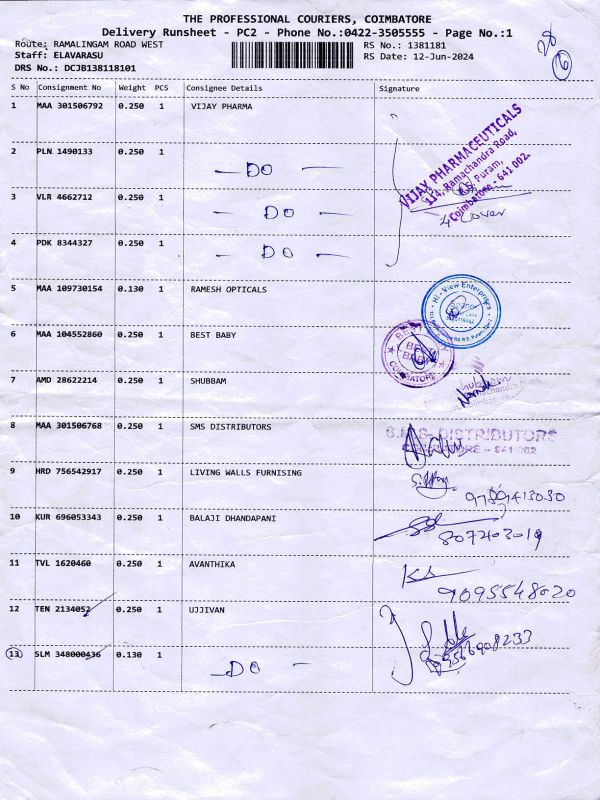 THE PROFESSIONAL COURIERS, COIMBATORE
Delivery Runsheet - PC2 - Phone No.:0422-3505555 - Page No.:1
Route: RAMALINGAM ROAD WEST RS No.: 1381181
Staff: ELAVARASU RS Date: 12-Jun-2024
DRS No.: DCJB138118101
28
6
S No Consignment No Weight PCS Consignee Details Signature
1 MAA 301506792 0.250 1 VIJAY PHARMA
VIJAY PHARMACEUTICALS
114, Ramachandra Road,
R.S. Puram,
Coimbatore - 641 002.
2 PLN 1490133 0.250 1 — DO —
3 VLR 4662712 0.250 1 — DO —
4 Cover
4 PDK 8344327 0.250 1 — DO —
5 MAA 109730154 0.130 1 RAMESH OPTICALS
Hi-View Enterprises
6 MAA 104552860 0.250 1 BEST BABY
BEST
COIMBATORE
7 AMD 28622214 0.250 1 SHUBBAM
8 MAA 301506768 0.250 1 SMS DISTRIBUTORS
S.M.S- DISTRIBUTORS
COIMBATORE - 641 002
9 HRD 756542917 0.250 1 LIVING WALLS FURNISING
9789413030
10 KUR 696053343 0.250 1 BALAJI DHANDAPANI
807203019
11 TVL 1620460 0.250 1 AVANTHIKA
9095548020
12 TEN 2134052 0.250 1 UJJIVAN
9566908233
13 SLM 348000436 0.130 1 — DO —